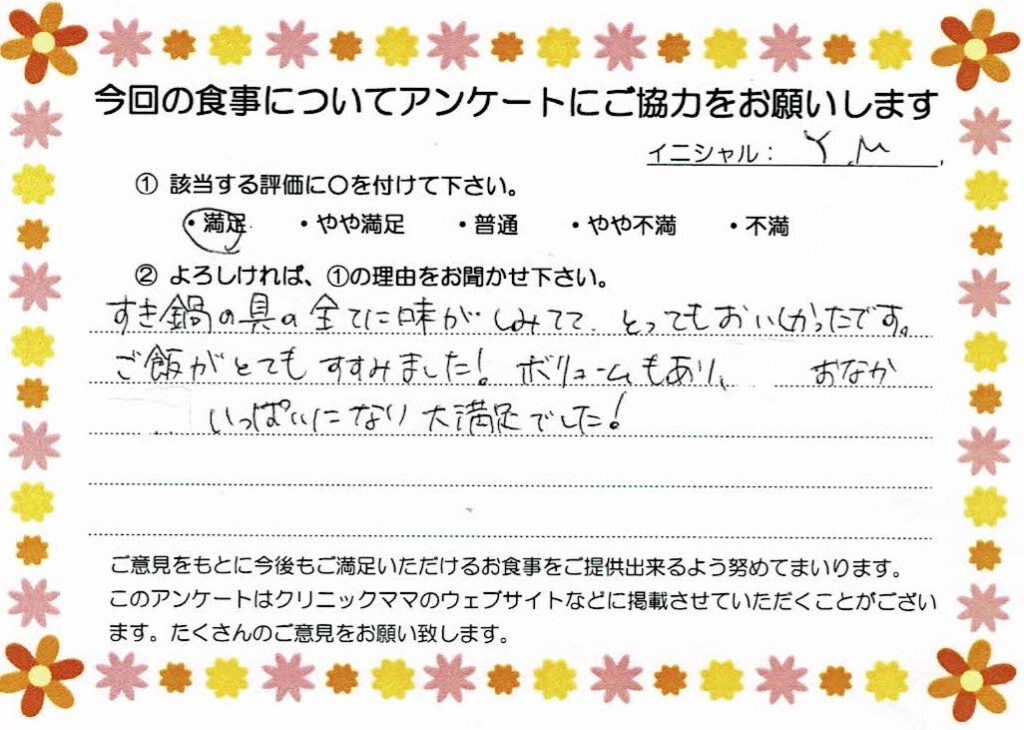 今回の食事についてアンケートにご協力をお願いします
イニシャル： Y.M
① 該当する評価に〇を付けて下さい。
・満足 ・やや満足 ・普通 ・やや不満 ・不満
② よろしければ、①の理由をお聞かせ下さい。
すき鍋の具の全てに味がしみてて、とってもおいしかったです。
ご飯がとてもすすみました！ボリュームもあり、おなか
いっぱいになり大満足でした！
ご意見をもとに今後もご満足いただけるお食事をご提供出来るよう努めてまいります。
このアンケートはクリニックママのウェブサイトなどに掲載させていただくことがござい
ます。たくさんのご意見をお願い致します。